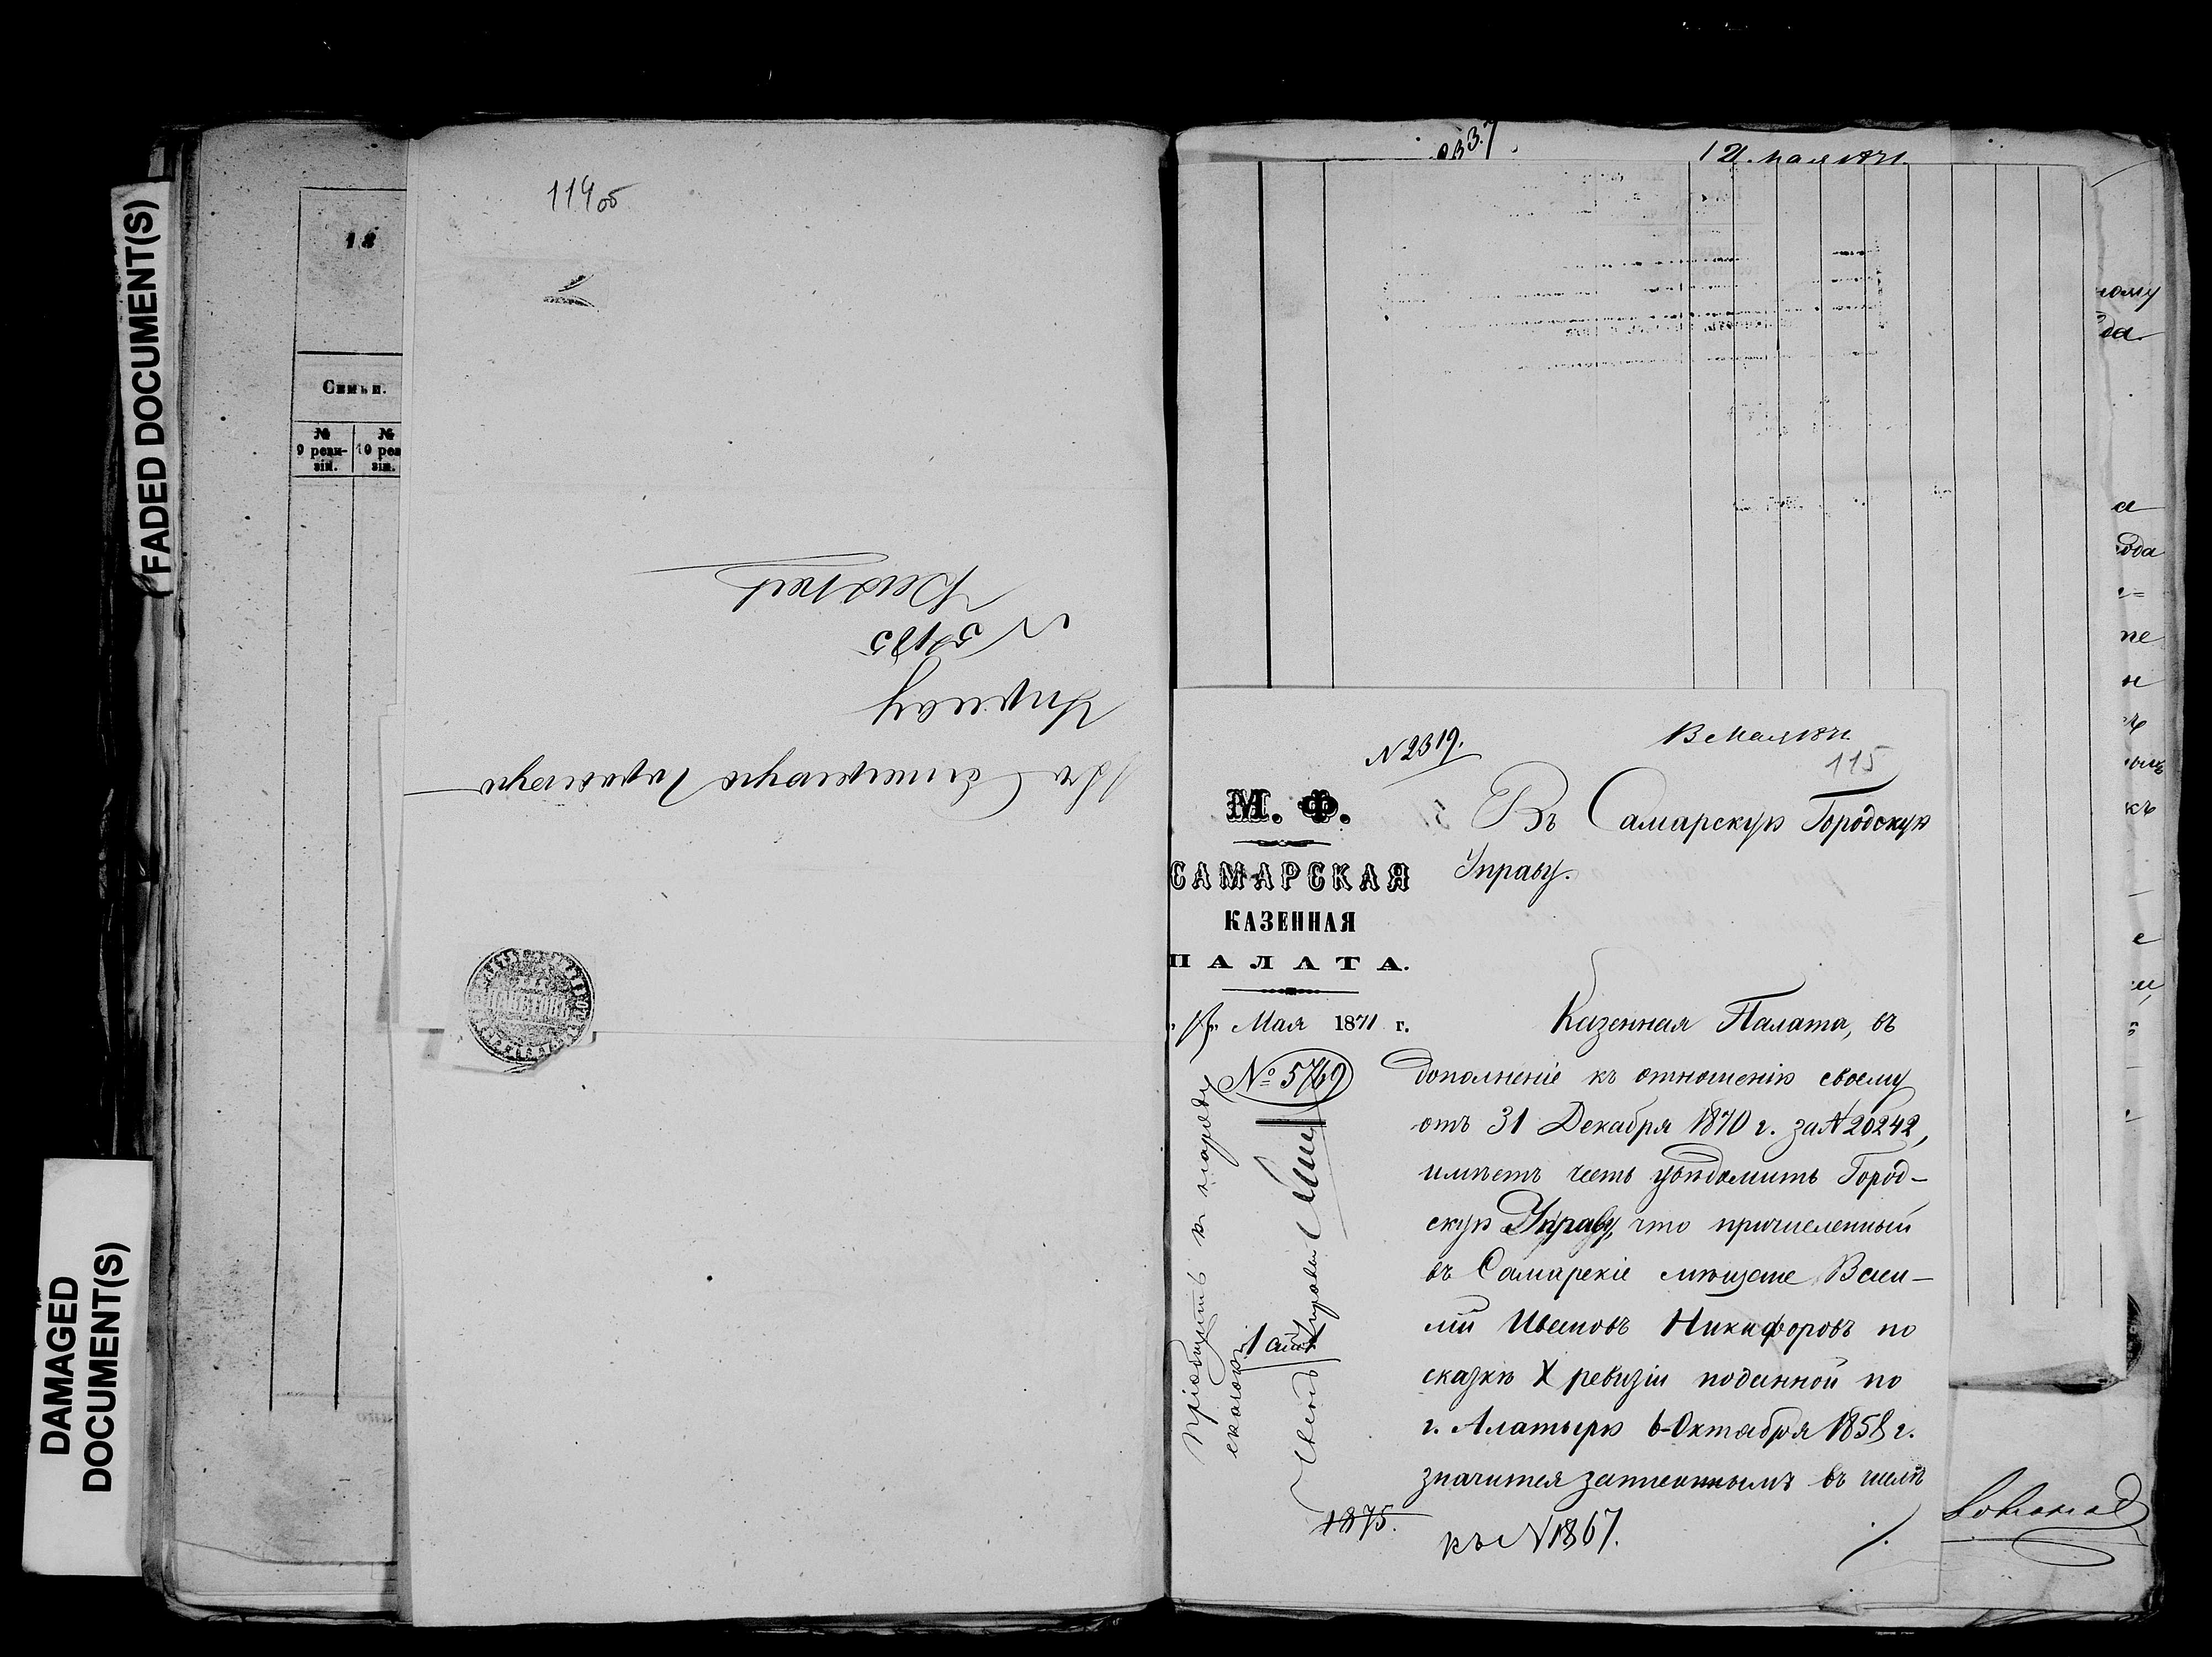 FADED DOCUMENT(S)
DAMAGED
DOCUMENT(S)
18
Семьи.
№ №
9 реви- 10 рев
зіи. зіи.
114 об
Въ Самарскую Городскую
Управу
N 5785
2337.
12. мая 1871.
ному
да.
а
года
пе
и
къ
е
N 2319.
13 Мая 1871
115
М. Ф.
САМАРСКАЯ
КАЗЕННАЯ
ПАЛАТА.
Мая 1871 г.
№ 5769
Въ Самарскую Городскую
Управу.
Казенная Палата, въ
дополненіе къ отношенію своему
отъ 31 Декабря 1870 г. за N 20242,
имѣетъ честь увѣдомить Город-
скую Управу, что причисленный
въ Самарскіе мѣщане Васи-
лій Ивановъ Никифоровъ по
сказкѣ X ревизіи поданной по
г. Алатырю 6 Октября 1858 г.
значится записаннымъ въ числѣ
Пріобщить къ наряду
1875.
къ N 1867.